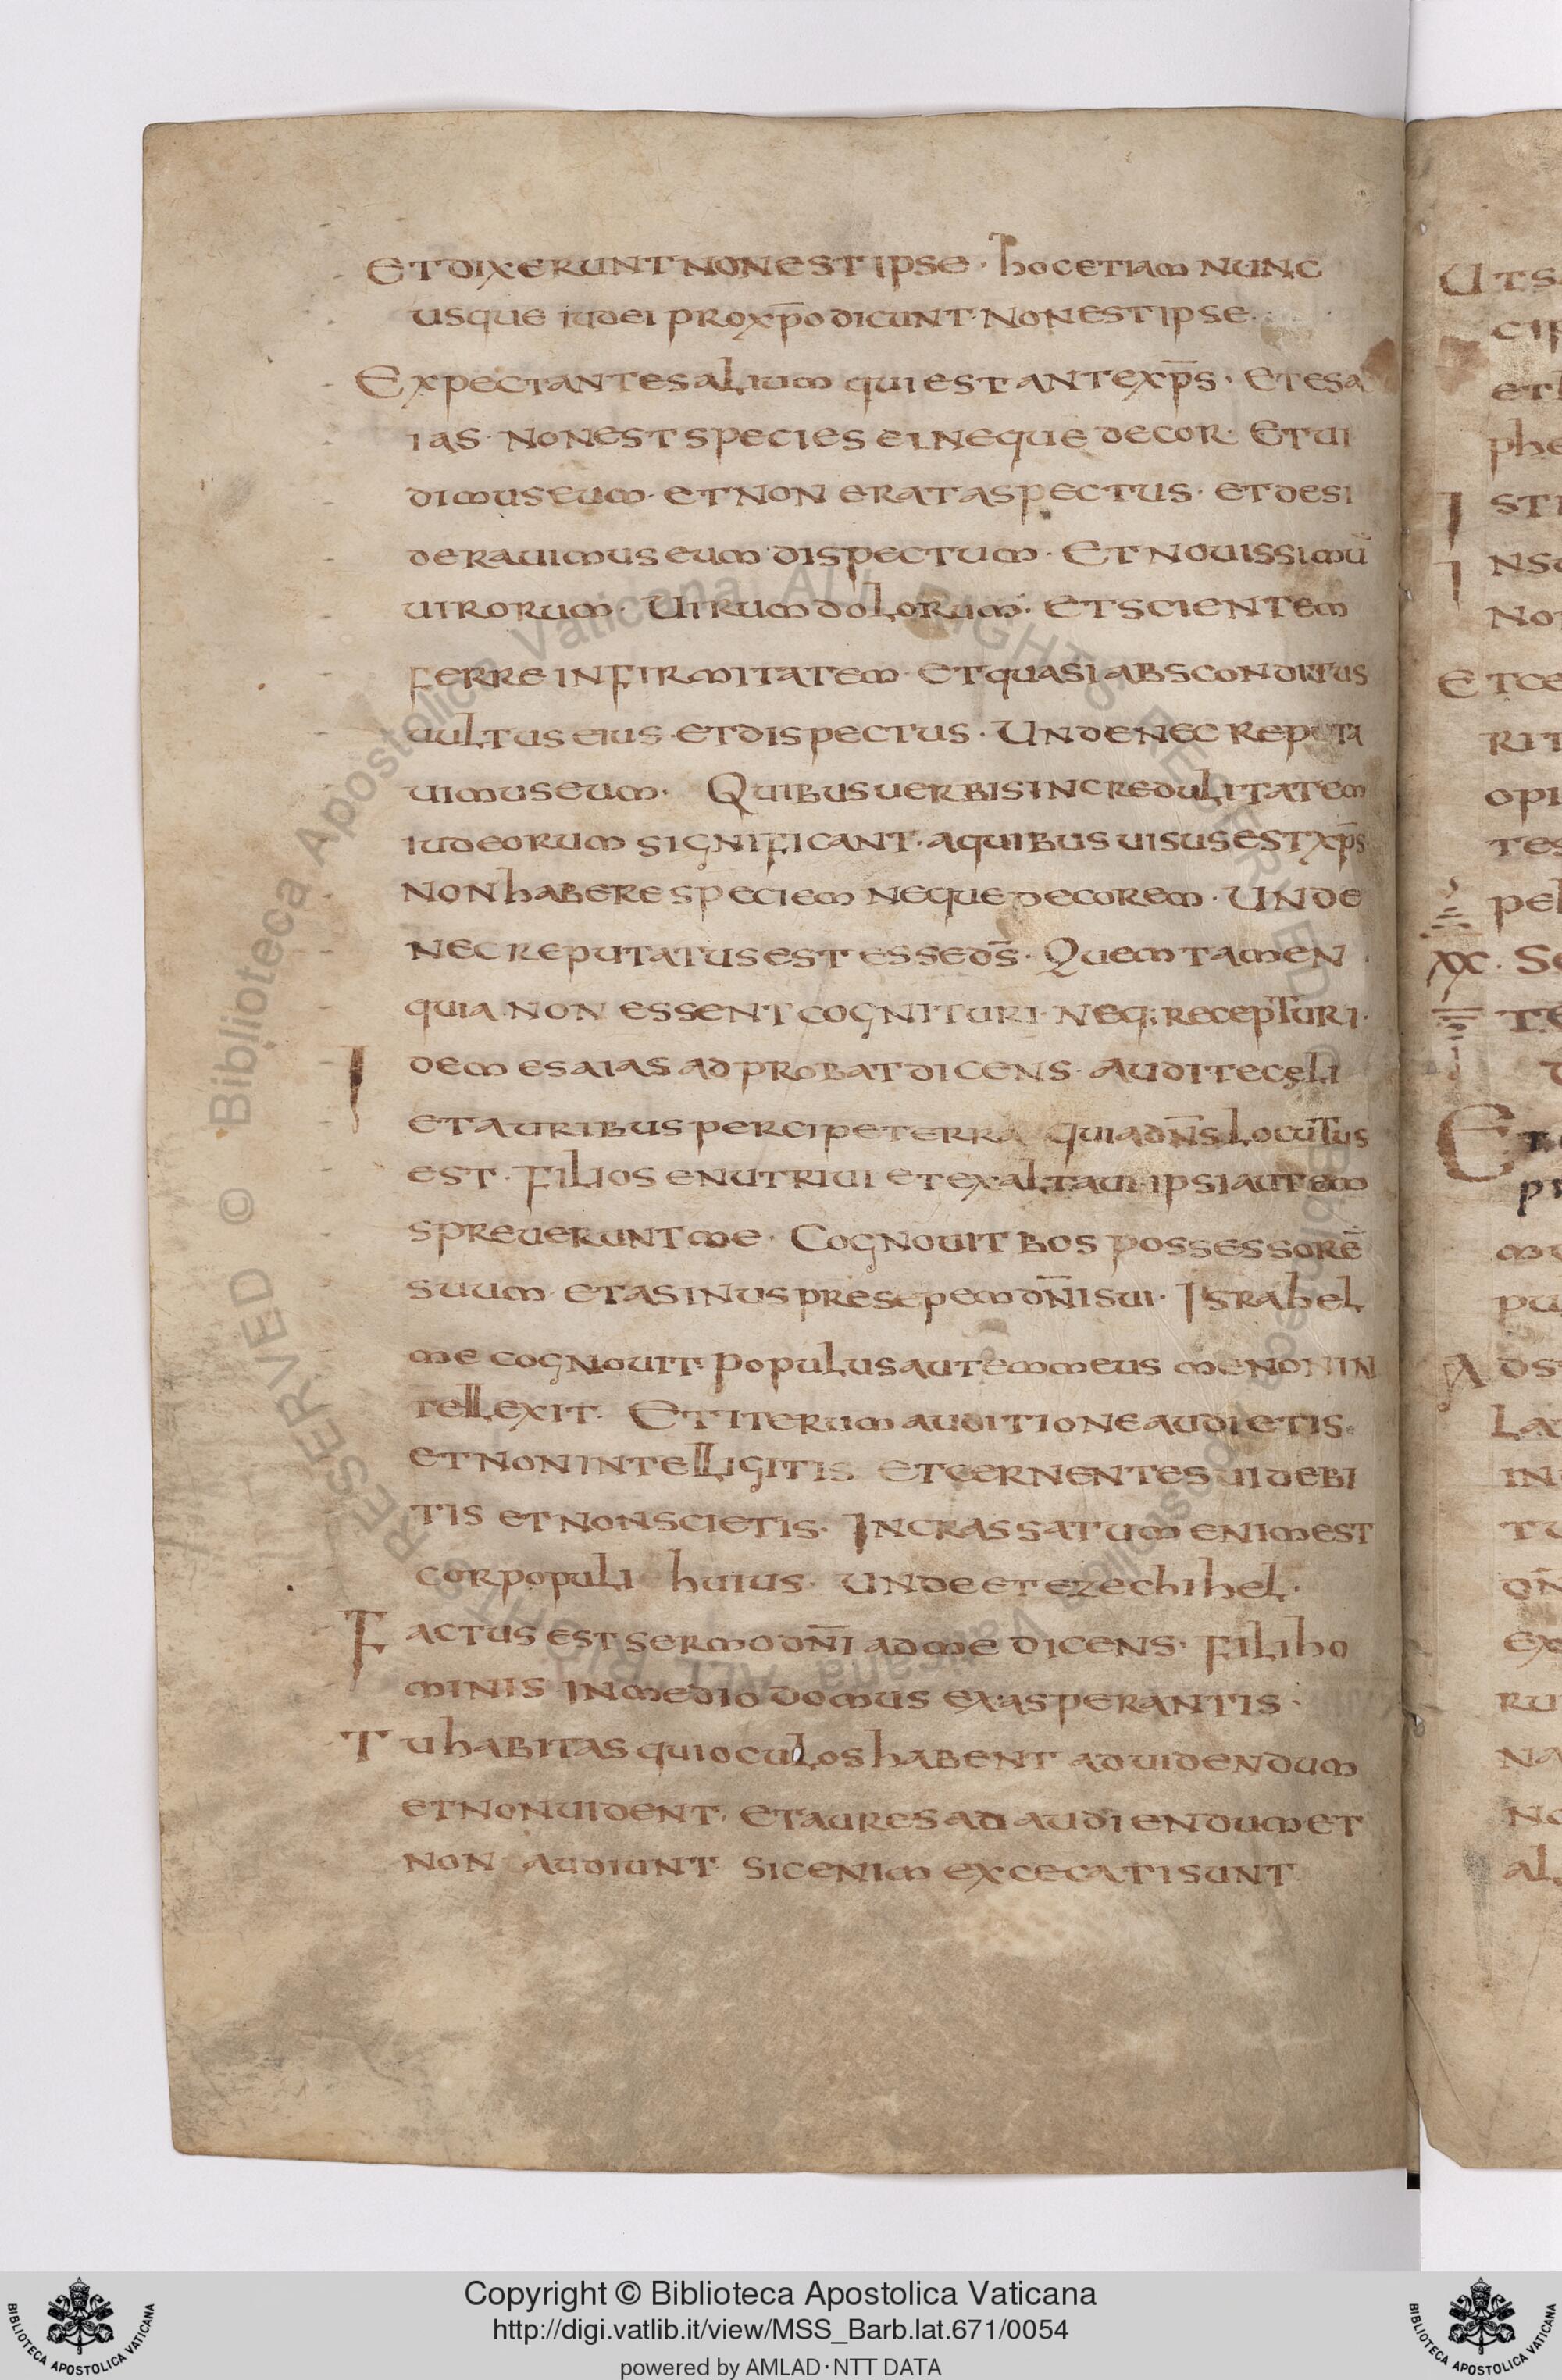 Et dixerunt non est ipse · hoc etiam nunc
usque iudei pro xp̄o dicunt · Non est ipse ·
Expectantes alium qui est antexp̄s · et esa
ias · non est species ei neque decor · Et ui
dimus eum · et non erat aspectus · et desi
derauimus eum dispectum · Et nouissimū
uirorum · Uirum dolorum · et scientem
ferre infirmitatem · et quasi absconditus
uultus eius · et dispectus · Unde nec reputa
uimus eum · Quibus uerbis incredulitatem
iudeorum significant · a quibus uisus est xp̄s
non habere speciem neque decorem · Unde
nec reputatus est esse d̄s · Quem tamen
quia non essent cognituri · neq; recepturi ·
Idem esaias adprobat dicens · Audite cęli
et auribus percipe terra quia dn̄s locutus
est · Filios enutriui et exaltaui · ipsi autem
spreuerunt me · Cognouit bos possessorē
suum et asinus presepem dn̄i sui · Israhel
me cognouit · populus autem meus me non in
tellexit · Et iterum auditione audietis ·
et non intelligitis et cernentes uidebi
tis et non scietis · Incrassatum enim est
cor populi huius · unde et ezechihel ·
Factus est sermo dn̄i ad me dicens · Fili ho
minis in medio domus exasperantis ·
Tu habitas qui oculos habent ad uidendum
et non uident · et aures ad audiendum et
non audiunt sic enim excecati sunt
Uts
cip
eth
phe
Isti
Insu
Non
Et ce
rit
opi
tes
pel
XX · Se
te
Et
ps
mu
pu
Ads
lax
in
tu
dn̄
ex
ru
na
no
al
Copyright © Biblioteca Apostolica Vaticana
http://digi.vatlib.it/view/MSS_Barb.lat.671/0054
powered by AMLAD·NTT DATA
BIBLIOTECA APOSTOLICA VATICANA
BIBLIOTECA APOSTOLICA VATICANA
© Biblioteca Apostolica Vaticana ALL RIGHTS RESERVED
© Biblioteca Apostolica Vaticana ALL RIGHTS RESERVED